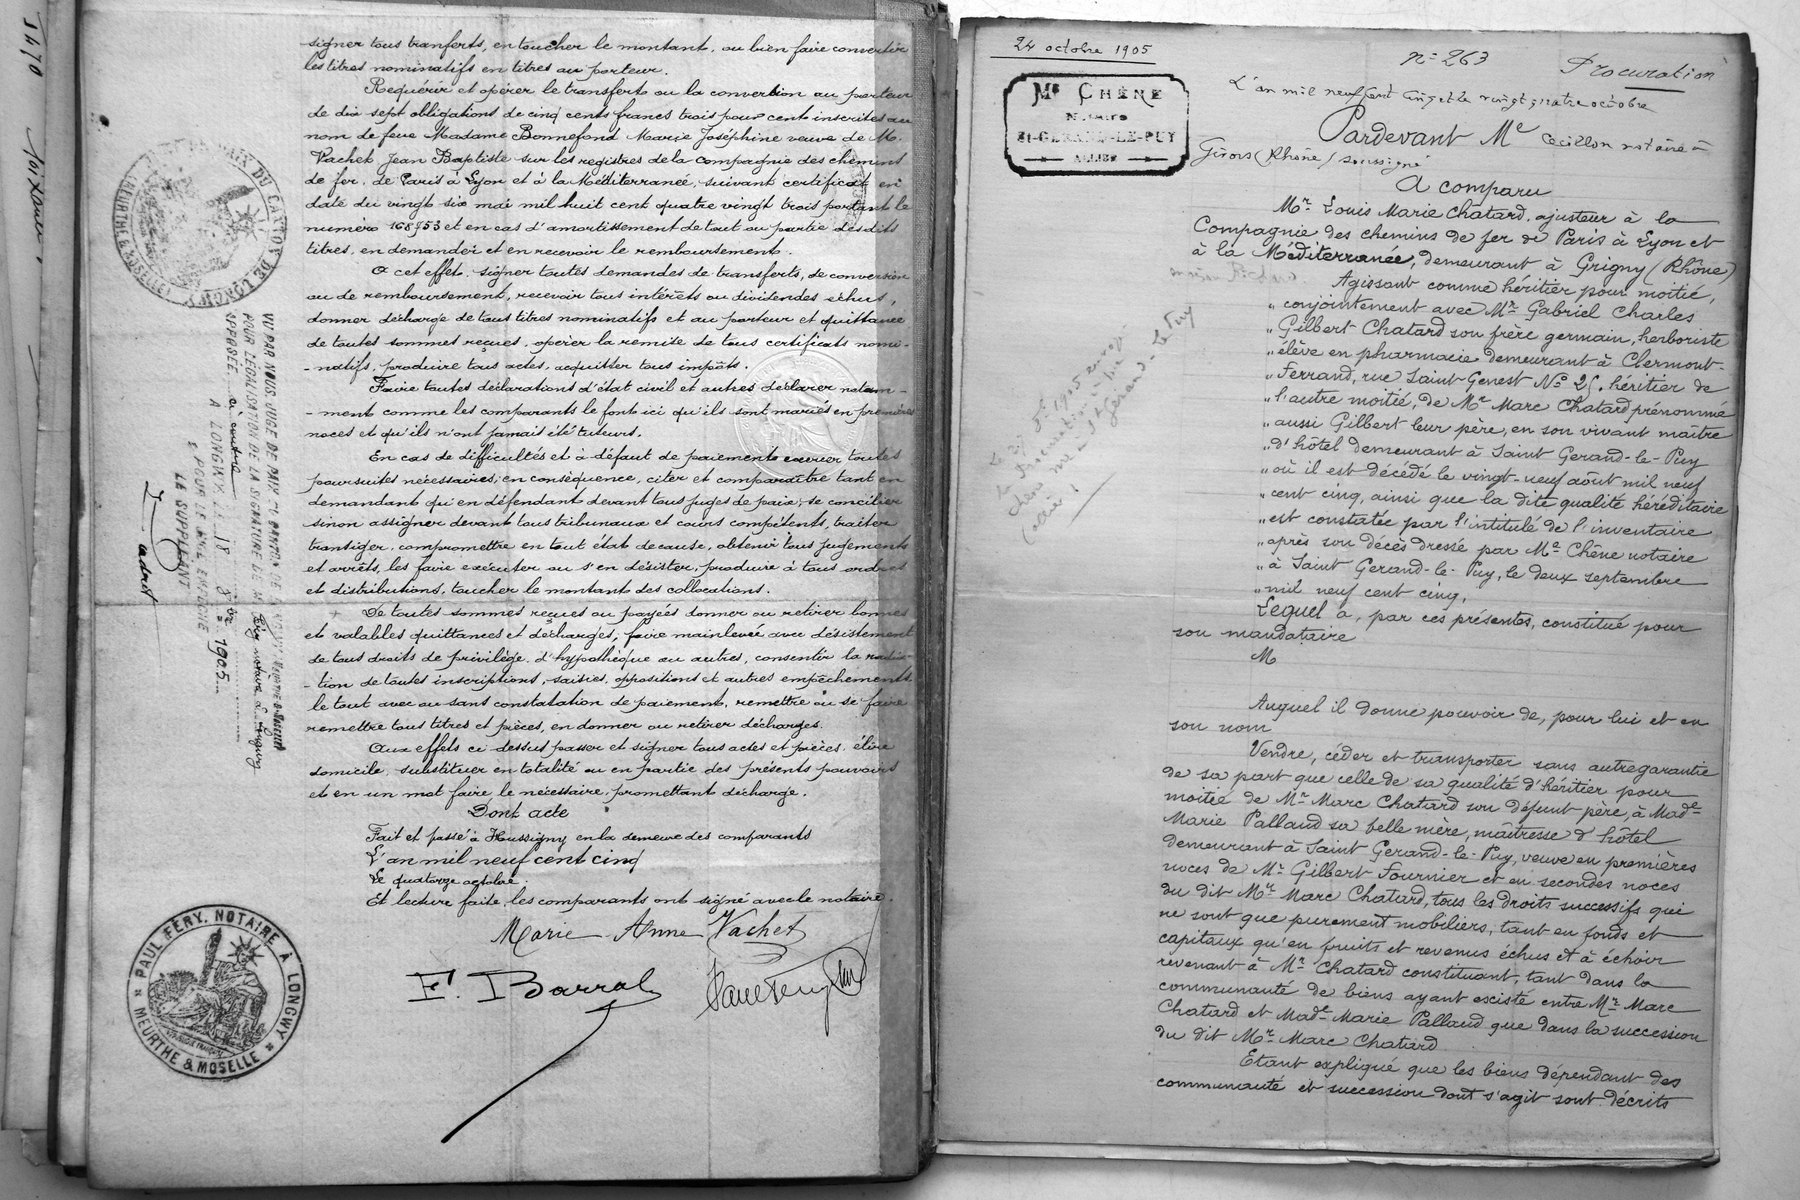 signer tous tranferts, en toucher le montant, ou bien faire convertir
les titres nominatifs en titres au porteur.
Requérir et opérer le transferts ou la convertion au porteur
de dix sept obligations de cinq cents francs trois pour cent inscrites au
nom de feue Madame Bonnefond Marie Joséphine veuve de M.
Vachet Jean Baptiste sur les registres de la Compagnie des chemins
de fer, de Paris à Lyon et à la Méditerranée, suivant certificat en
date du vingt six mai mil huit cent quatre vingt trois portant le
numéro et en cas d'amortissement de tout ou partie des dits
titres, en demander et en recevoir le remboursement.
A cet effet, signer toutes demandes de transferts, de conversion
ou de remboursement, recevoir tous intérêts ou dividendes échus,
donner décharge de tous titres nominatifs et au porteur et quittance
de toutes sommes reçues, opérer la remise de tous certificats nomi-
-natifs, produire tous actes, acquitter tous impôts.
Faire toutes déclarations d'état civil et autres déclarer notam-
-ment comme les comparants le font ici qu'ils sont mariés en premières
noces et qu'ils n'ont jamais été tuteurs.
En cas de difficultés et à défaut de paiement exercer toutes
poursuites nécessaires; en conséquence, citer et comparaître tant en
demandant qu'en défendant devant tous juges de paix; se concilier
sinon assigner devant tous tribunaux et cours compétents, traiter
transiger, compromettre en tout état de cause, obtenir tous jugements
et arrêts, les faire exécuter ou s'en désister, produire à tous ordres
et distributions, toucher le montant des collocations.
De toutes sommes reçues ou payées donner ou retirer bonnes
et valables quittances et décharges, faire mainlevée avec désistement
de tous droits de privilège, d'hypothèque ou autres, consentir la radia-
-tion de toutes inscriptions, saisies, oppositions et autres empêchements
le tout avec ou sans constatation de paiement, remettre ou se faire
remettre tous titres et pièces, en donner ou retirer décharges.
Aux effets ci dessus passer et signer tous actes et pièces, élire
domicile, substituer en totalité ou en partie des présents pouvoirs
et en un mot faire le nécessaire, promettant décharge.
Dont acte
Fait et passé à Hussigny en la demeure des comparants
L'an mil neuf cent cinq
Le quatorze octobre.
Et lecture faite, les comparants ont signé avec le notaire.
Marie-Anne Vachet
F. Barral
VU PAR NOUS, JUGE DE PAIX DU CANTON DE
POUR LEGALISATION DE LA SIGNATURE DE M. Féry notaire à Longwy
APPOSÉE ci contre
A LONGWY, LE 18 8bre 1905
POUR LE JUGE EMPÊCHÉ
LE SUPPLÉANT
PAUL FÉRY, NOTAIRE À LONGWY
MEURTHE & MOSELLE
24 octobre 1905
n° 263
Procuration
Me CHÊNE
Notaire
St-GERAND-LE-PUY
ALLIER
L'an mil neuf cent cinq et le vingt quatre octobre
Pardevant Me Cecillon notaire à
Givors (Rhône) soussigné
A comparu
Mr. Louis Marie Chatard, ajusteur à la
Compagnie des chemins de fer de Paris à Lyon et
à la Méditerranée, demeurant à Grigny (Rhône)
Agissant comme héritier pour moitié,
" conjointement avec Mr. Gabriel Charles
" Gilbert Chatard son frère germain, herboriste
" élève en pharmacie demeurant à Clermont-
" Ferrand, rue Saint-Genest No 25, héritier de
" l'autre moitié, de Mr Marc Chatard prénommé
" aussi Gilbert leur père, en son vivant maître
" d'hôtel demeurant à Saint Gerand-le-Puy
" où il est décédé le vingt-neuf août mil neuf
" cent cinq, ainsi que la dite qualité héréditaire
" est constatée par l'intitulé de l'inventaire
" après son décès dressé par Me Chêne notaire
" à Saint Gerand-le-Puy, le deux septembre
" mil neuf cent cinq,
Lequel a, par ces présentes, constitué pour
son mandataire
M
Auquel il donne pouvoir de, pour lui et en
son nom
Vendre, céder et transporter sans autre garantie
de sa part que celle de sa qualité d'héritier pour
moitié de Mr. Marc Chatard son défunt père, à Made
Marie Palland sa belle mère, maîtresse d'hôtel
demeurant à Saint Gerand-le-Puy, veuve en premières
noces de Mr. Gilbert Fournier et en secondes noces
du dit Mr. Marc Chatard, tous les droits successifs qui
ne sont que purement mobiliers, tant en fonds et
capitaux qu'en fruits et revenus échus et à échoir
revenant à Mr. Chatard constituant, tant dans la
communauté de biens ayant existé entre Mr. Marc
Chatard et Made Marie Palland que dans la succession
du dit Mr. Marc Chatard
Etant expliqué que les biens dépendant des
communauté et succession dont s'agit sont décrits